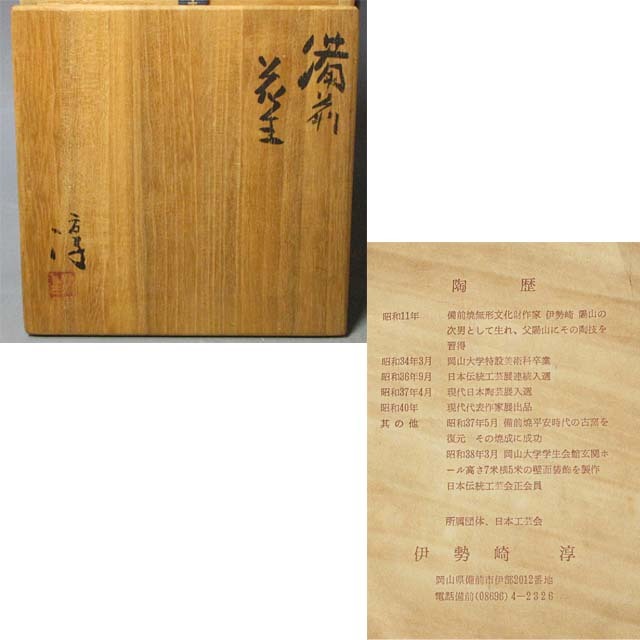 備前
花生
淳
陶歴
昭和11年 備前焼無形文化財作家 伊勢崎 陽山の
次男として生れ、父陽山にその陶技を
習得
昭和34年3月 岡山大学特設美術科卒業
昭和36年9月 日本伝統工芸展連続入選
昭和37年4月 現代日本陶芸展入選
昭和40年 現代代表作家展出品
其の他 昭和37年5月 備前焼平安時代の古窯を
復元 その焼成に成功
昭和38年3月 岡山大学学生会館玄関ホ
ール高さ7米横5米の壁面装飾を製作
日本伝統工芸会正会員
所属団体、日本工芸会
伊勢崎淳
岡山県備前市伊部2012番地
電話備前(08696)4-2326